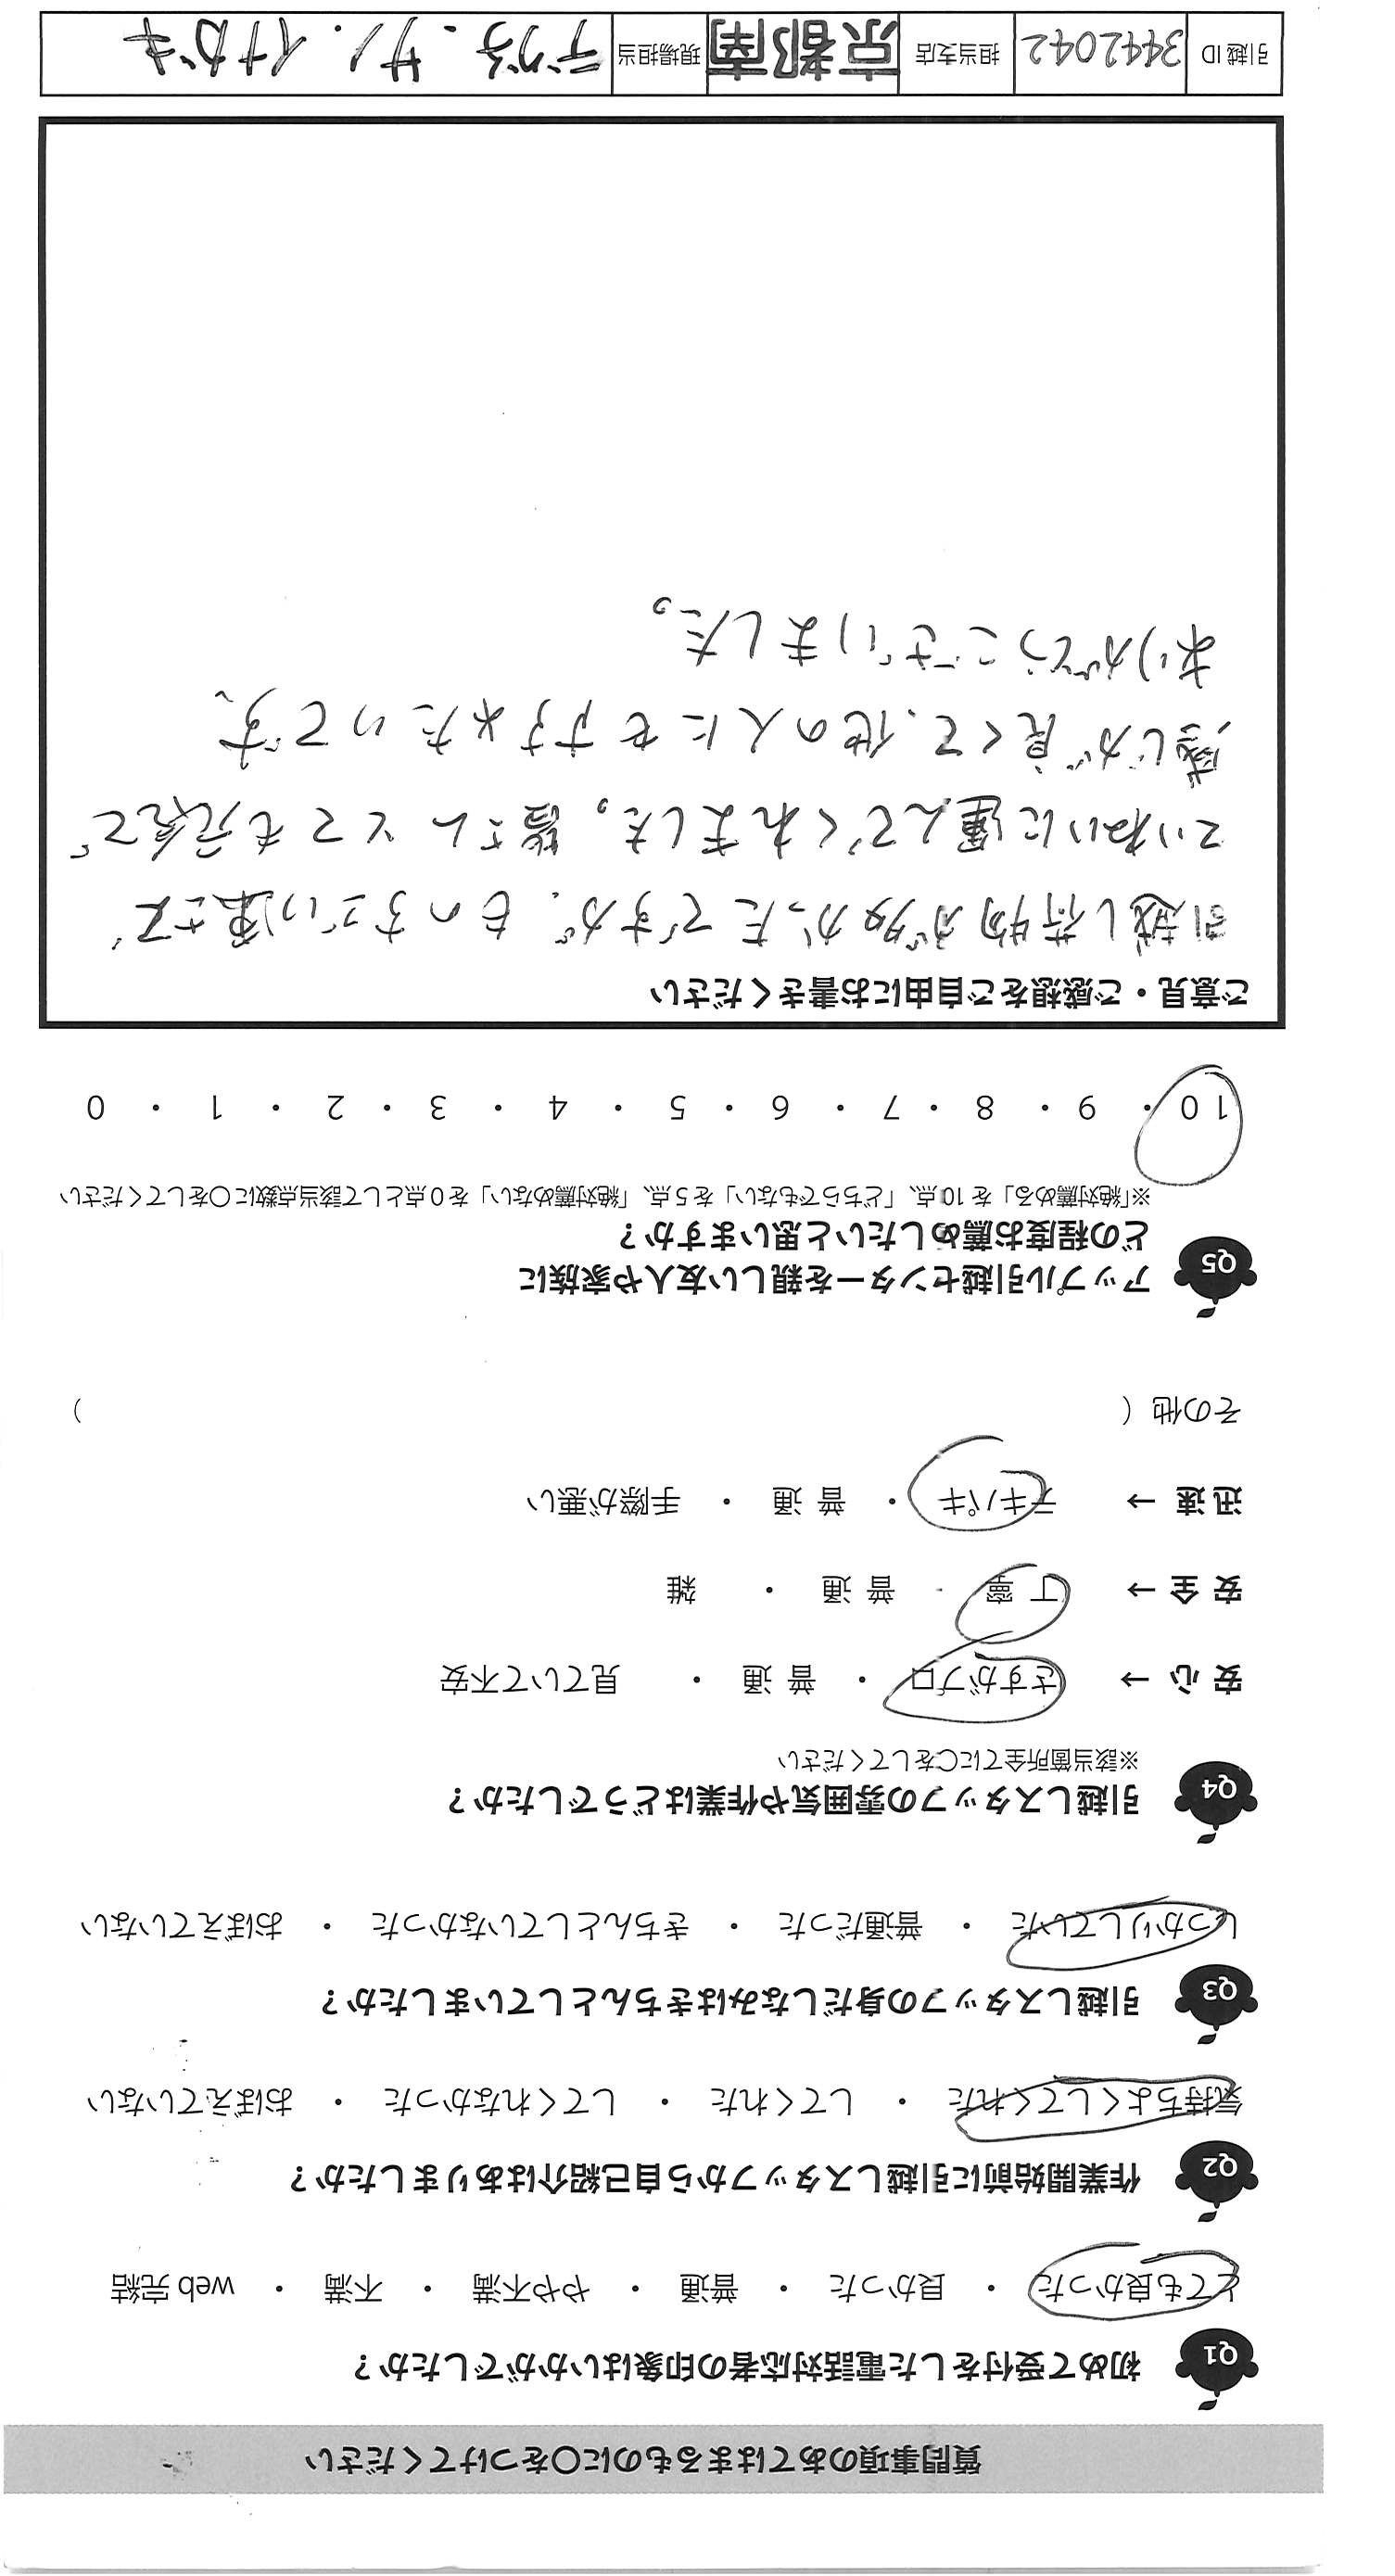 質問事項のあてはまるものに〇をつけてください
Q1 初めて受付をした電話対応者の印象はいかがでしたか？
とても良かった ・ 良かった ・ 普通 ・ やや不満 ・ 不満 ・ web 完結
Q2 作業開始前に引越しスタッフから自己紹介はありましたか？
気持ちよくしてくれた ・ してくれた ・ してくれなかった ・ おぼえていない
Q3 引越しスタッフの身だしなみはきちんとしていましたか？
しっかりしていた ・ 普通だった ・ きちんとしていなかった ・ おぼえていない
Q4 引越しスタッフの雰囲気や作業はどうでしたか？
※該当箇所全てに〇をしてください
安心 → さすがプロ ・ 普通 ・ 見ていて不安
安全 → 丁寧 ・ 普通 ・ 雑
迅速 → テキパキ ・ 普通 ・ 手際が悪い
その他（ ）
Q5 アップル引越センターを親しい友人や家族に
どの程度お薦めしたいと思いますか？
※「絶対薦める」を10点、「どちらでもない」を5点、「絶対薦めない」を0点として該当点数に〇をしてください
10 ・ 9 ・ 8 ・ 7 ・ 6 ・ 5 ・ 4 ・ 3 ・ 2 ・ 1 ・ 0
ご意見・ご感想をご自由にお書きください
引越し荷物が多かったですが、ものすごい速さで、
ていねいに運んでくれました。皆さんとても元気で
感じが良くて、他の人にもすすめたいです。
ありがとうございました。
引越ID 3442042 担当支店 京都南 現場担当 デグチ．サノ．イナガキ